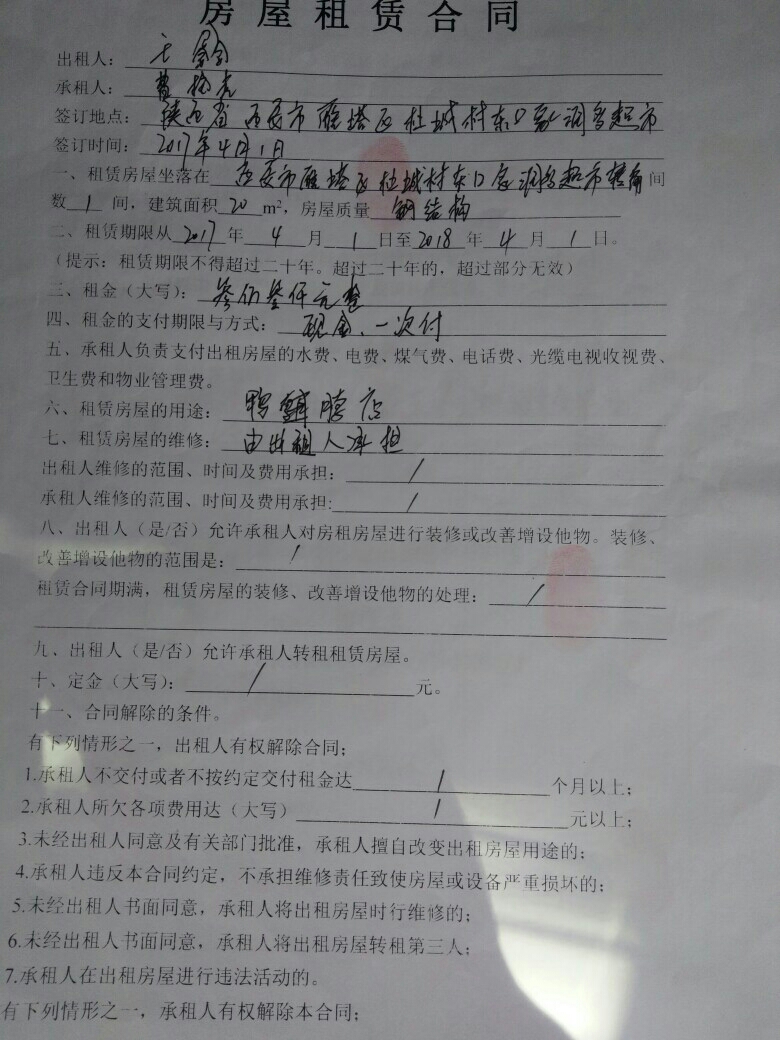 房屋租赁合同
出租人：
承租人：
签订地点：陕西省西安市雁塔区杜城村东口家润多超市
签订时间：2017年4月1日
一、租赁房屋坐落在 西安市雁塔区杜城村东口家润多超市转角 间
数 1 间，建筑面积 20 m²，房屋质量 钢结构
二、租赁期限从 2017 年 4 月 1 日至 2018 年 4 月 1 日。
（提示：租赁期限不得超过二十年。超过二十年的，超过部分无效）
三、租金（大写）： 元整
四、租金的支付期限与方式： 现金、一次付
五、承租人负责支付出租房屋的水费、电费、煤气费、电话费、光缆电视收视费、
卫生费和物业管理费。
六、租赁房屋的用途： 鸭 脖店
七、租赁房屋的维修： 由出租人承担
出租人维修的范围、时间及费用承担： /
承租人维修的范围、时间及费用承担: /
八、出租人（是/否）允许承租人对房租房屋进行装修或改善增设他物。装修、
改善增设他物的范围是： /
租赁合同期满，租赁房屋的装修、改善增设他物的处理： /
九、出租人（是/否）允许承租人转租租赁房屋。
十、定金（大写）： / 元。
十一、合同解除的条件。
有下列情形之一，出租人有权解除合同；
1.承租人不交付或者不按约定交付租金达 / 个月以上；
2.承租人所欠各项费用达（大写） / 元以上；
3.未经出租人同意及有关部门批准，承租人擅自改变出租房屋用途的；
4.承租人违反本合同约定，不承担维修责任致使房屋或设备严重损坏的；
5.未经出租人书面同意，承租人将出租房屋时行维修的；
6.未经出租人书面同意，承租人将出租房屋转租第三人；
7.承租人在出租房屋进行违法活动的。
有下列情形之一，承租人有权解除本合同；